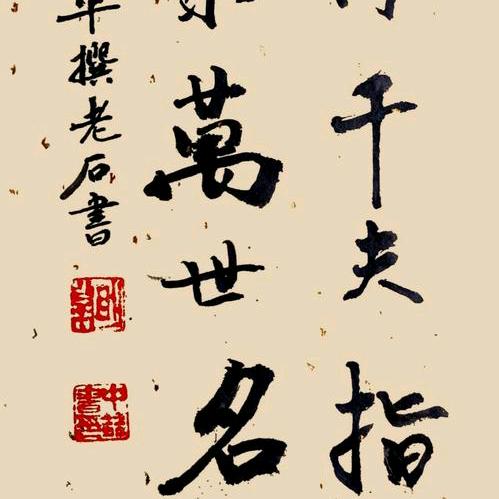 千夫指
萬世名
撰老石書